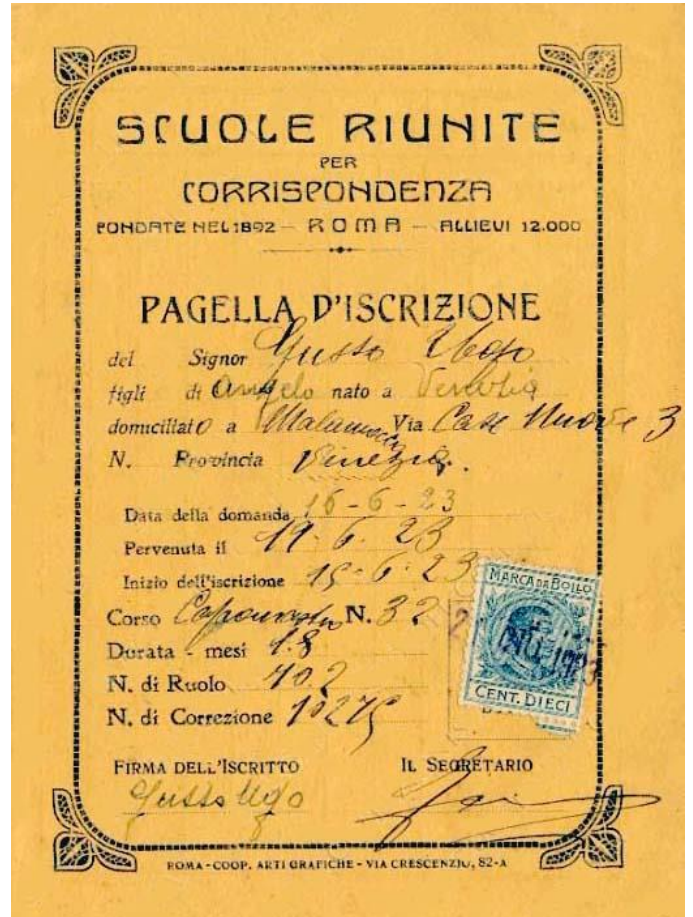 SCUOLE RIUNITE
PER
CORRISPONDENZA
FONDATE NEL 1892 — ROMA — ALLIEVI 12.000
PAGELLA D'ISCRIZIONE
del Signor Gusso Ugo
figli di Angelo nato a Venezia
domiciliato a Malamocco Via Case Nuove 3
N. Provincia Venezia.
Data della domanda 16-6-23
Pervenuta il 19-6-23
Inizio dell'iscrizione 15-6-23
Corso N. 32
Durata - mesi 18
N. di Ruolo 402
N. di Correzione 10275
MARCA DA BOLLO
1923
CENT. DIECI
FIRMA DELL'ISCRITTO IL SEGRETARIO
Gusso Ugo
ROMA - COOP. ARTI GRAFICHE - VIA CRESCENZIO, 82-A